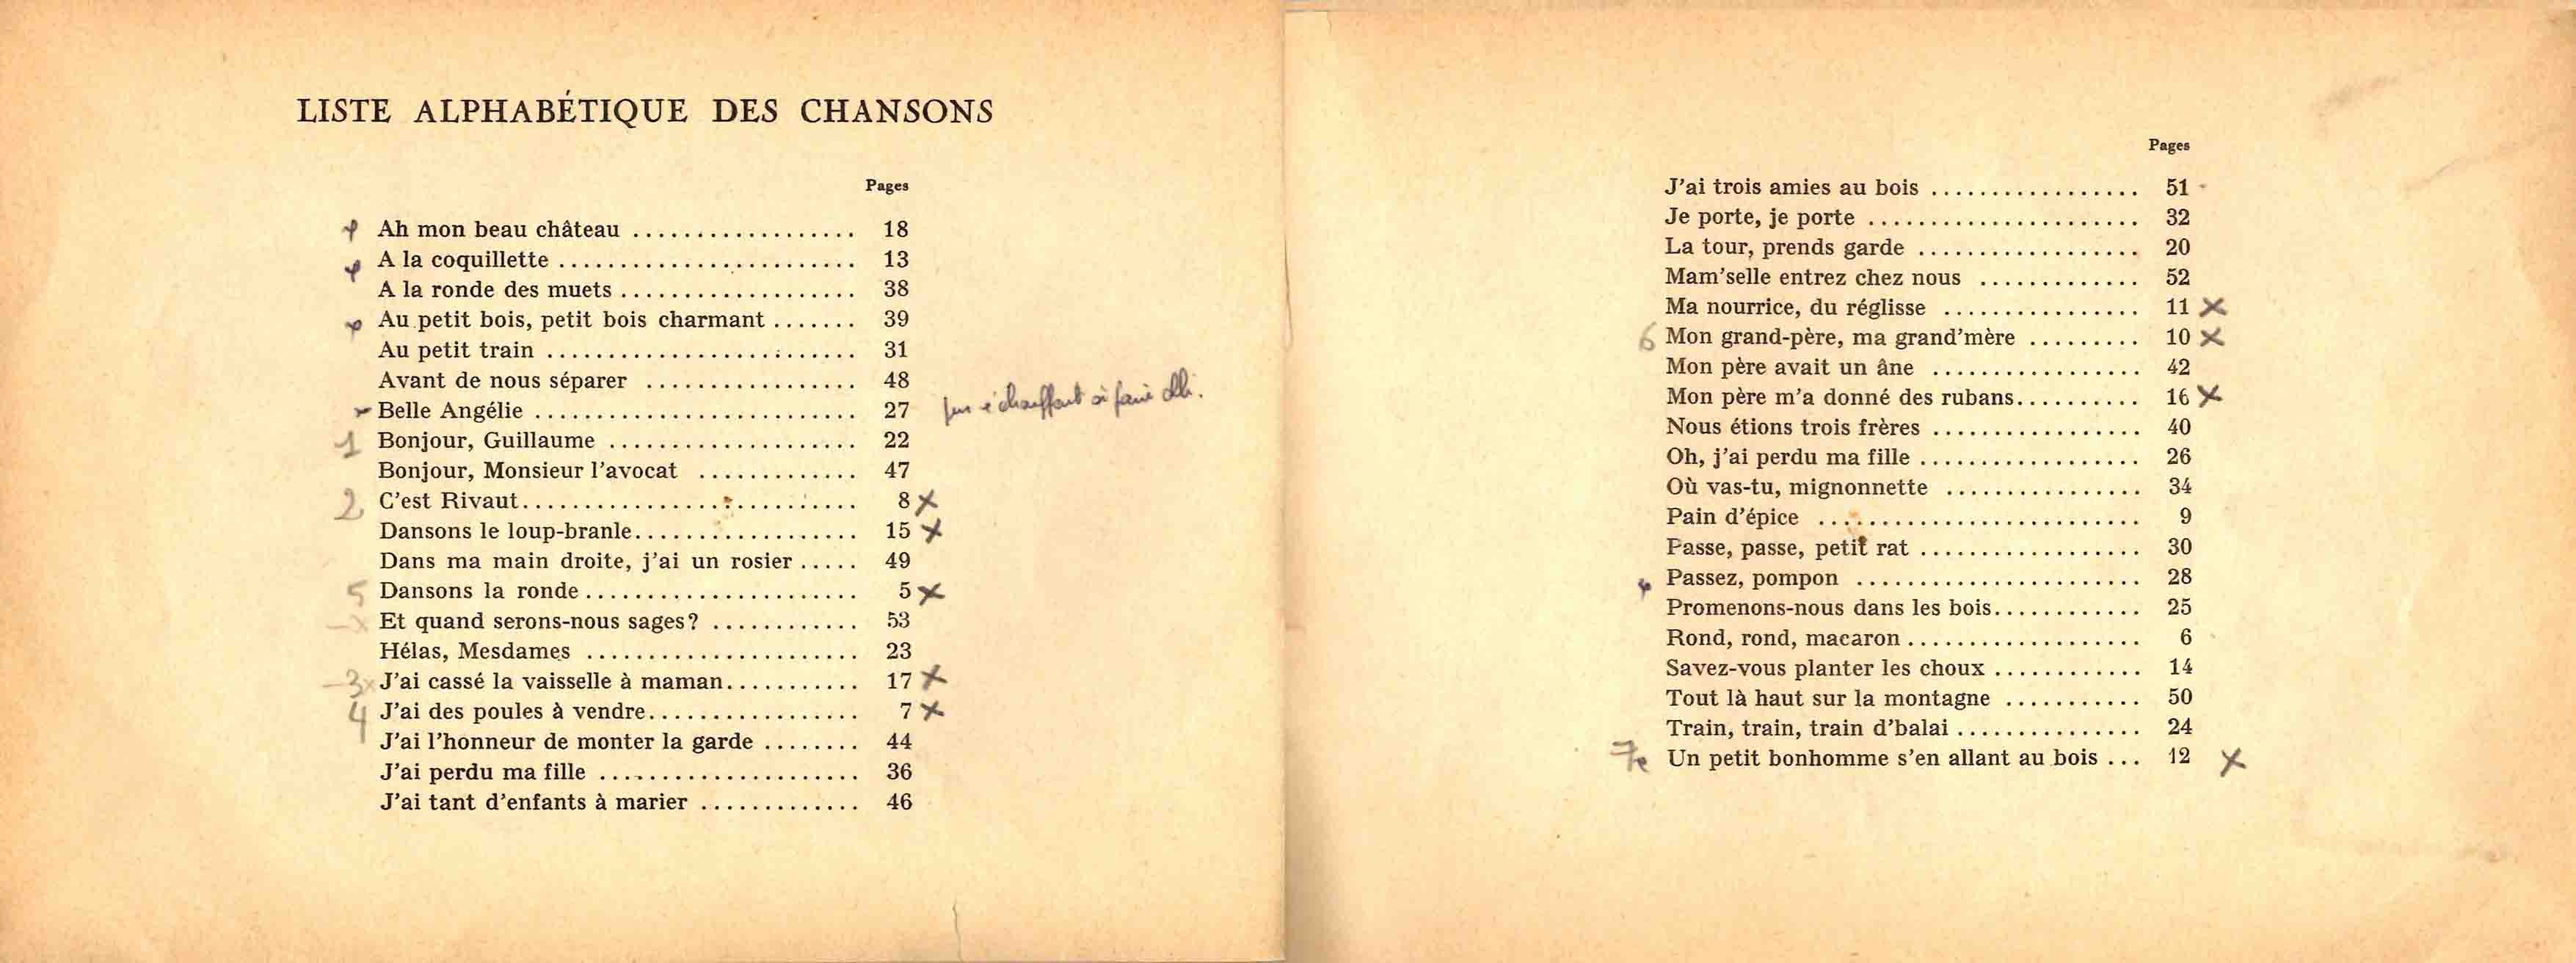 LISTE ALPHABÉTIQUE DES CHANSONS
Pages
Ah mon beau château .................. 18
A la coquillette ........................ 13
A la ronde des muets ................... 38
Au petit bois, petit bois charmant ....... 39
Au petit train ......................... 31
Avant de nous séparer ................. 48
Belle Angélie .......................... 27 à faire
1 Bonjour, Guillaume .................... 22
Bonjour, Monsieur l'avocat ............. 47
2 C'est Rivaut........................... 8 x
Dansons le loup-branle.................. 15 x
Dans ma main droite, j'ai un rosier ..... 49
5 Dansons la ronde ...................... 5 x
x Et quand serons-nous sages? ............ 53
Hélas, Mesdames ...................... 23
3x J'ai cassé la vaisselle à maman........... 17 x
4 J'ai des poules à vendre................. 7 x
J'ai l'honneur de monter la garde ........ 44
J'ai perdu ma fille ..................... 36
J'ai tant d'enfants à marier ............. 46
Pages
J'ai trois amies au bois ................. 51
Je porte, je porte ...................... 32
La tour, prends garde .................. 20
Mam'selle entrez chez nous ............. 52
Ma nourrice, du réglisse ................ 11 x
6 Mon grand-père, ma grand'mère ......... 10 x
Mon père avait un âne ................. 42
Mon père m'a donné des rubans.......... 16 x
Nous étions trois frères ................. 40
Oh, j'ai perdu ma fille .................. 26
Où vas-tu, mignonnette ................ 34
Pain d'épice .......................... 9
Passe, passe, petit rat .................. 30
Passez, pompon ....................... 28
Promenons-nous dans les bois............ 25
Rond, rond, macaron ................... 6
Savez-vous planter les choux ............ 14
Tout là haut sur la montagne ........... 50
Train, train, train d'balai ............... 24
7 Un petit bonhomme s'en allant au bois ... 12 x